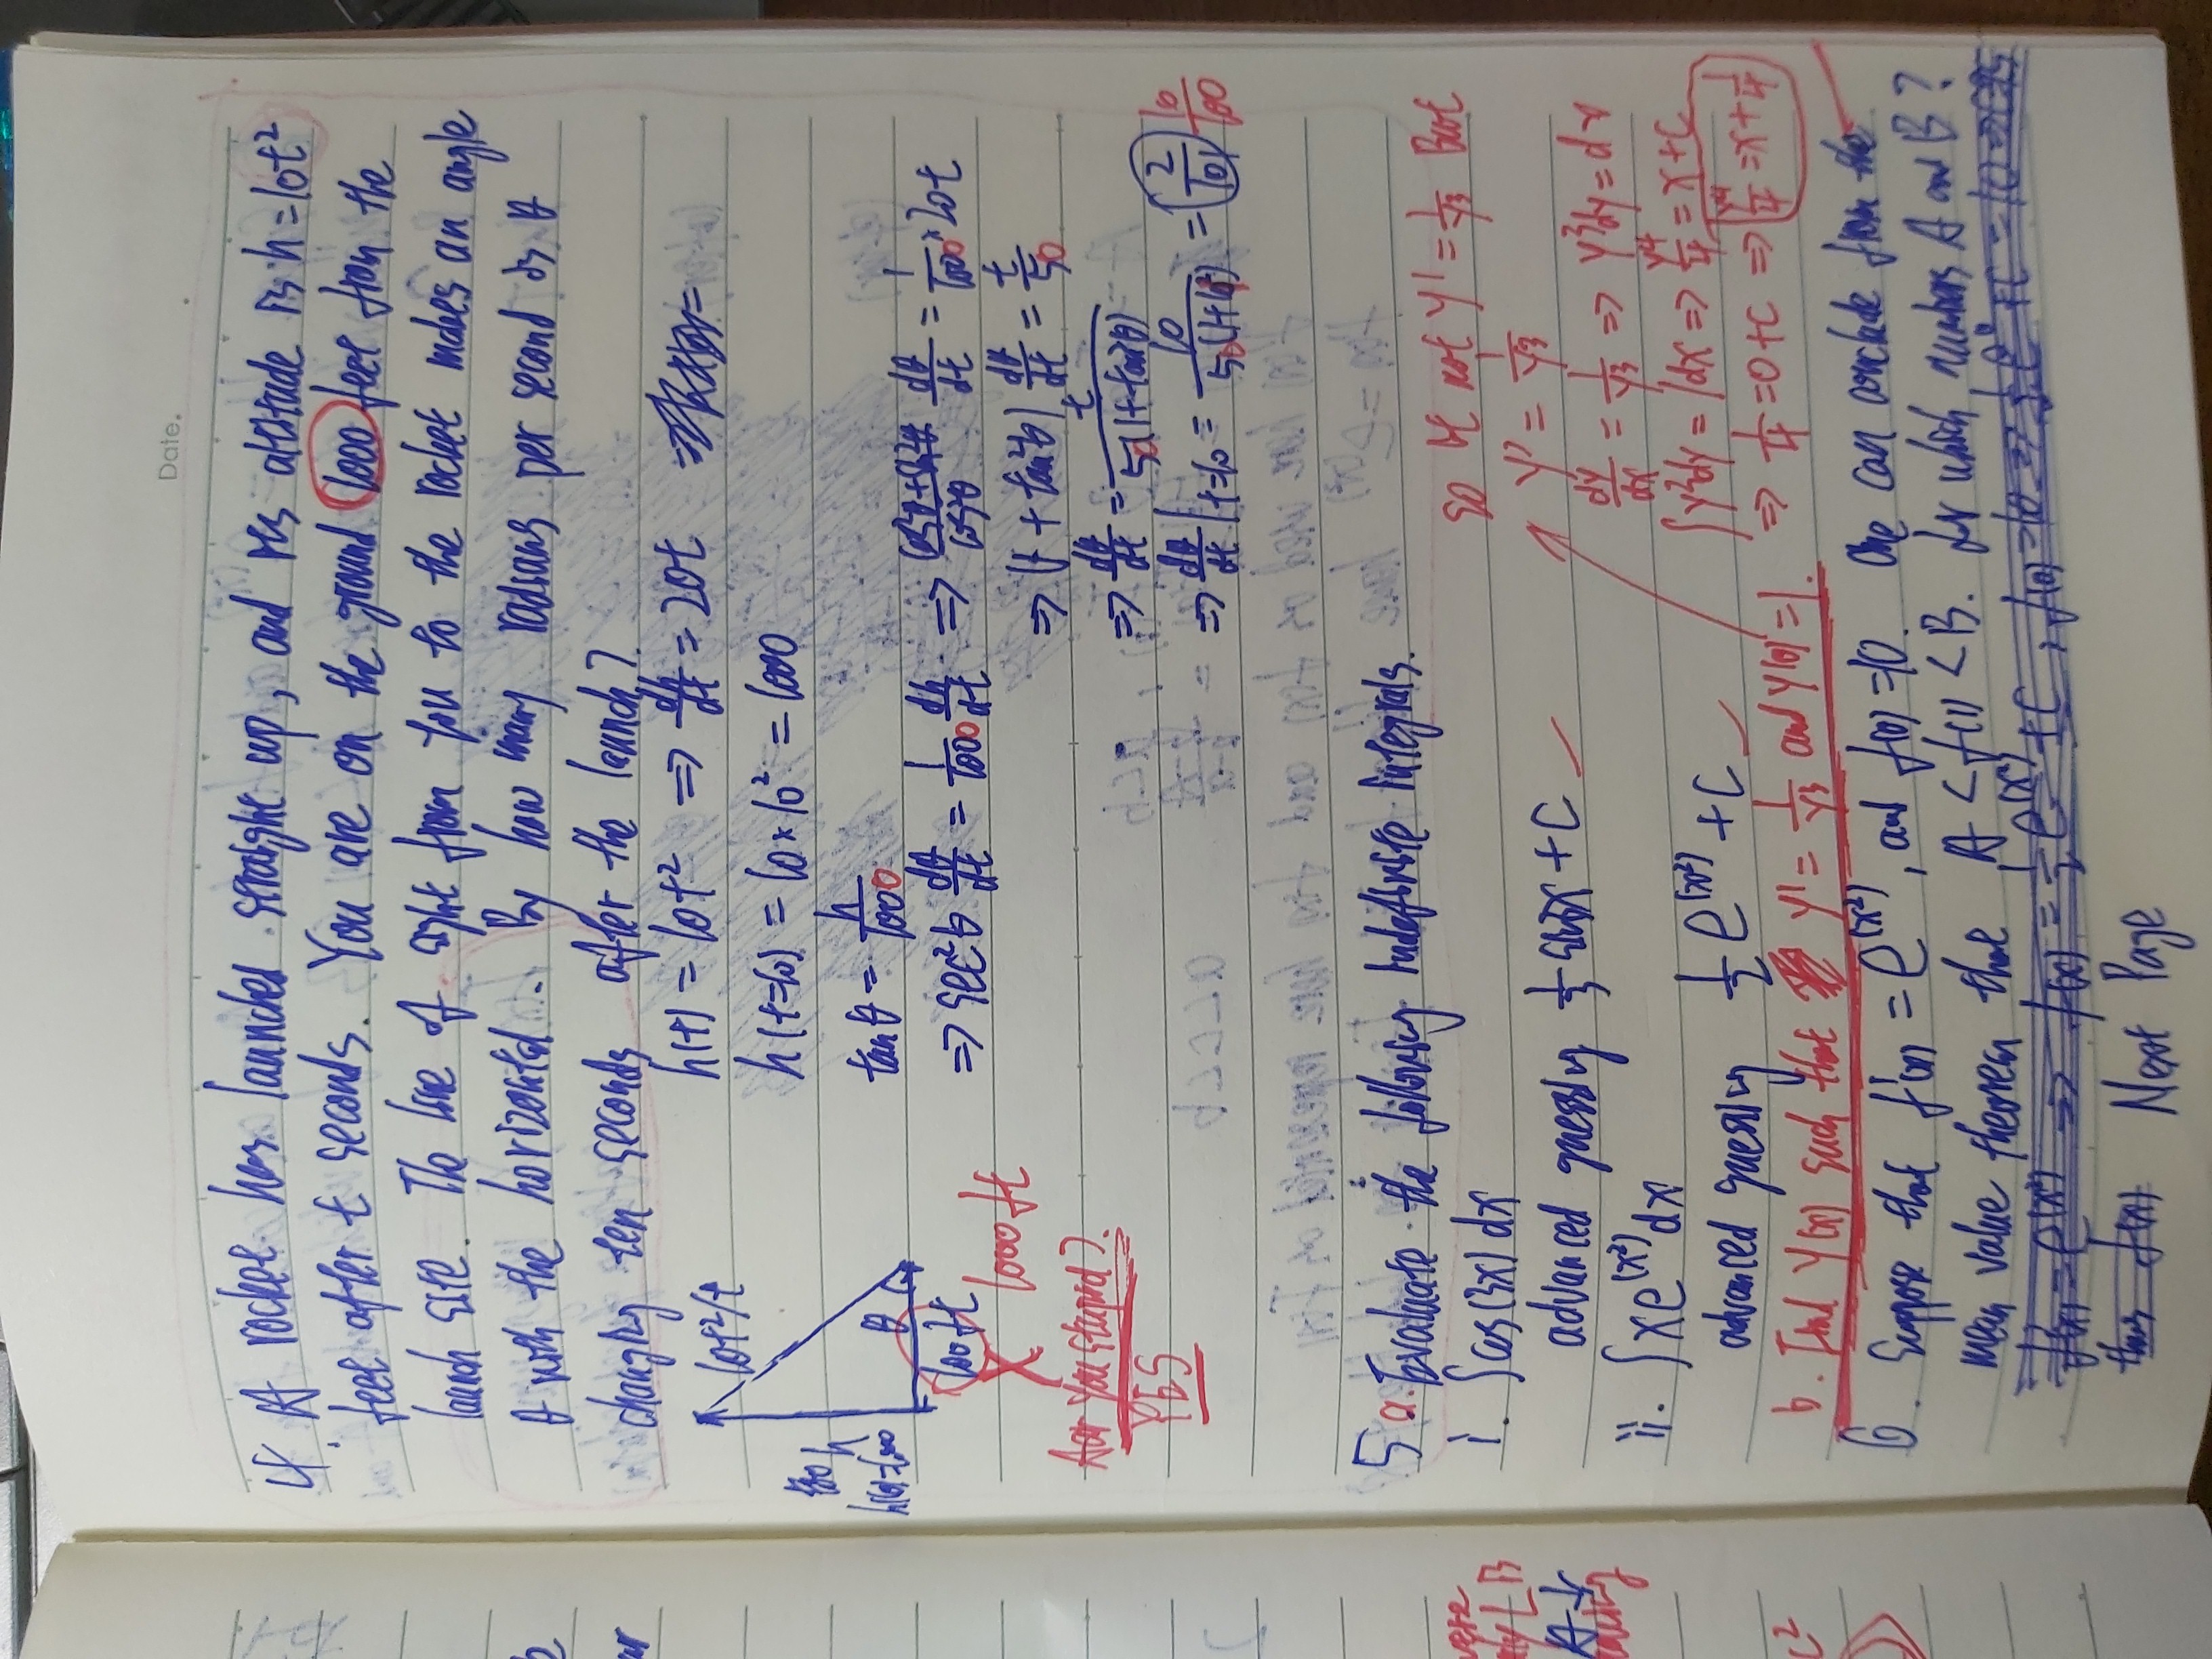 Date.
4. A rocket has launched straight up, and its altitude is h = 10t²
feet after t seconds. You are on the ground 1000 feet from the
launch site. The line of sight from you to the rocket makes an angle
θ with the horizontal. By how many radians per second is θ
changing ten seconds after the launch?
h(t) = 10t² ⇒ dh/dt = 20t
10t²/t
h(t=10) = 10×10² = 1000
h
h(10)=1000
θ
100ft
tanθ = h/1000
⇒ sec²θ dθ/dt = 1/1000 dh/dt ⇒ (cos²θ+sin²θ)/cos²θ dθ/dt = 1/1000 × 20t
X 1000 ft
⇒ (1 + tan²θ) dθ/dt = t/50
Aar You stupid?
YES
⇒ dθ/dt = t/50(1+tan²θ)
⇒ dθ/dt|t=10 = 10/50(1+1²) = 2/101 10/100
5 a. Evaluate the following indefinite integrals.
i. ∫cos(3x)dx
advanced guessing 1/3 sin3x + C
ii. ∫xe^(x²)dx
advanced guessing 1/2 e^(x²) + C
so it not y' = 1/y3 But
y' = 1/y³
dy/dx = 1/y³ ⇒ y³dy = dx
∫y³dy = ∫dx ⇒ y⁴/4 = x+C
⇒ 1/4 = 0+C ⇒ y⁴/4 = x+1/4
b. Find y(x) such that y' = 1/y³ and y(0)=1.
6. Suppose that f'(x) = e^(x²), and f(0)=10. One can conclude from the
mean value theorem that A < f(1) < B. for which numbers A and B?
f'(x) = e^(x²) ⇒ f(x) = 1/2 e^(x²) + C, f(0)=10 ⇒ 1/2 e⁰ + C = 10
thus f(x) Next Page